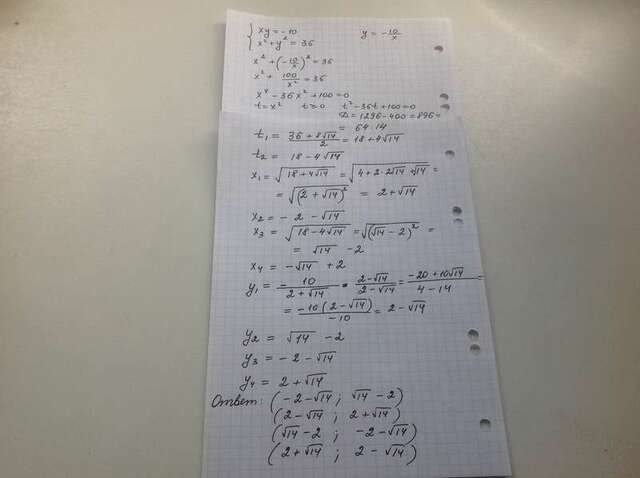 xy = -10    y = -10/x
x² + y² = 36
x² + (-10/x)² = 36
x² + 100/x² = 36
x⁴ - 36x² + 100 = 0
t = x²  t ≥ 0  t² - 36t + 100 = 0
D = 1296 - 400 = 896 =
= 64·14
t₁ = (36 + 8√14)/2 = 18 + 4√14
t₂ = 18 - 4√14
x₁ = √(18 + 4√14) = √(4 + 2·2√14 + √14) =
= √((2 + √14)²) = 2 + √14
x₂ = -2 - √14
x₃ = √(18 - 4√14) = √((√14 - 2)²) =
= √14 - 2
x₄ = -√14 + 2
y₁ = -10/(2 + √14) · (2 - √14)/(2 - √14) = (-20 + 10√14)/(4 - 14) =
= -10(2 - √14)/(-10) = 2 - √14
y₂ = √14 - 2
y₃ = -2 - √14
y₄ = 2 + √14
Ответ: (-2 - √14; √14 - 2)
(2 - √14; 2 + √14)
(√14 - 2; -2 - √14)
(2 + √14; 2 - √14)